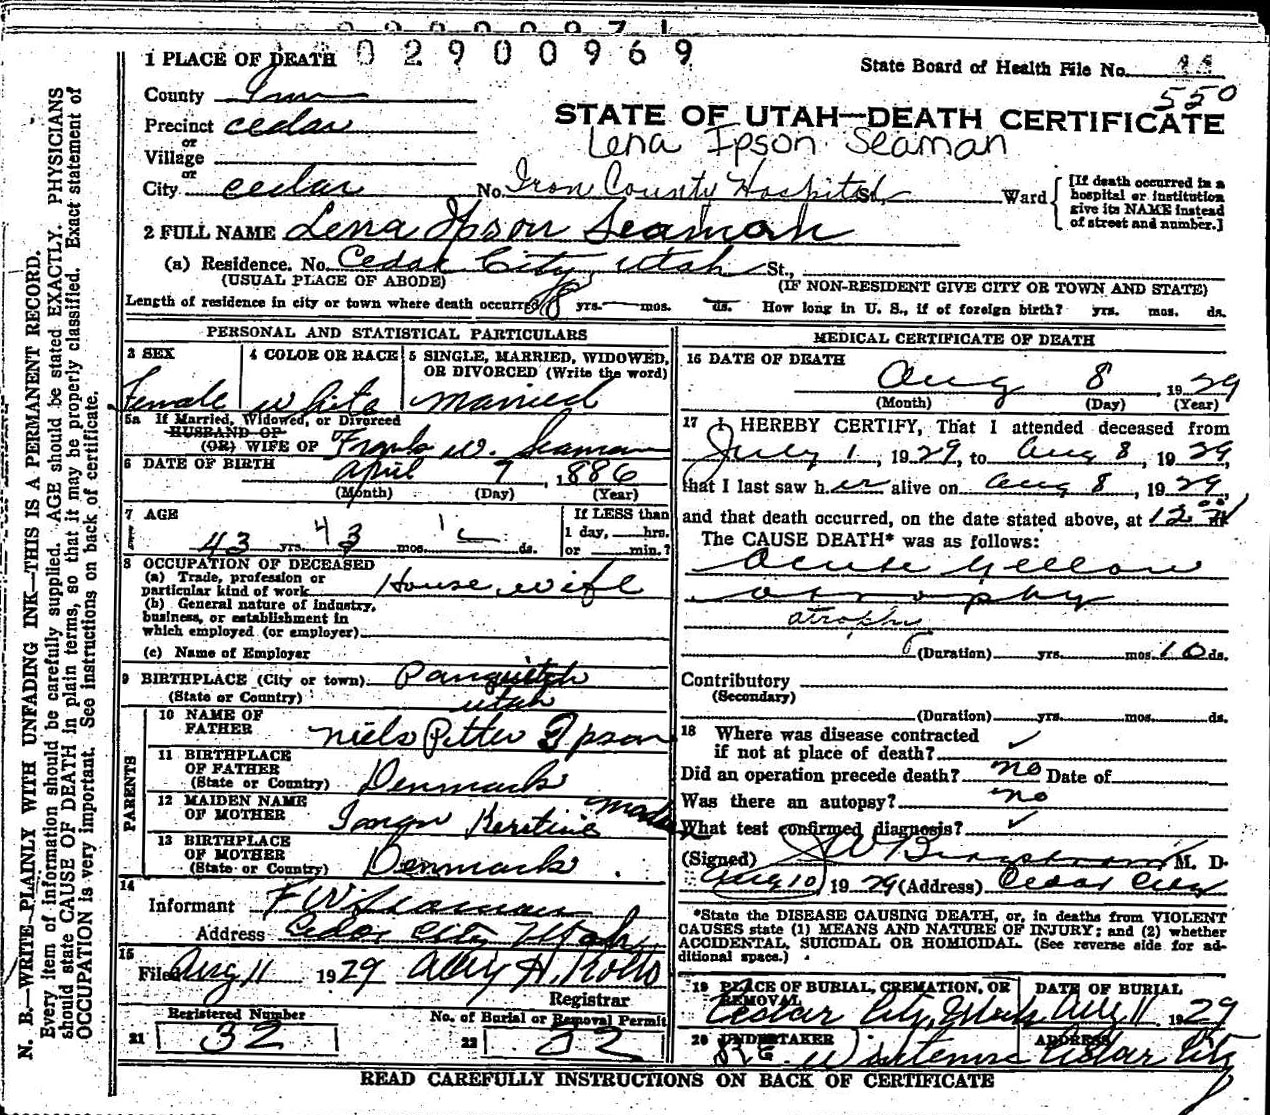 02900969
1 PLACE OF DEATH
State Board of Health File No. 44
550
County Iron
STATE OF UTAH—DEATH CERTIFICATE
Precinct cedar
Lena Ipson Seaman
or
Village
or
City cedar No. Iron County Hospital Ward [If death occurred in a hospital or institution give its NAME instead of street and number.]
2 FULL NAME Lena Ipson Seaman
(a) Residence. No. Cedar City, Utah St.,
(USUAL PLACE OF ABODE) (IF NON-RESIDENT GIVE CITY OR TOWN AND STATE)
Length of residence in city or town where death occurred 18 yrs. mos. ds. How long in U. S., if of foreign birth? yrs. mos. ds.
PERSONAL AND STATISTICAL PARTICULARS
3 SEX
Female
4 COLOR OR RACE
White
5 SINGLE, MARRIED, WIDOWED,
OR DIVORCED (Write the word)
Married
5a If Married, Widowed, or Divorced
HUSBAND OF
(OR) WIFE OF Frank W. Seaman
6 DATE OF BIRTH April 7, 1886
(Month) (Day) (Year)
7 AGE
43 yrs. 43 mos. ds.
If LESS than
1 day, hrs.
or min.?
8 OCCUPATION OF DECEASED
(a) Trade, profession or
particular kind of work House wife
(b) General nature of industry,
business, or establishment in
which employed (or employer)
(c) Name of Employer
9 BIRTHPLACE (City or town) Panguitch
(State or Country) Utah
PARENTS
10 NAME OF
FATHER Niels Petter Ipson
11 BIRTHPLACE
OF FATHER
(State or Country) Denmark
12 MAIDEN NAME
OF MOTHER Kerstine
13 BIRTHPLACE
OF MOTHER
(State or Country) Denmark.
14
Informant F W Seaman
Address Cedar City Utah
15
Filed Aug 11 1929
Registrar
Registered Number
21 32
No. of Burial or Removal Permit
22 32
MEDICAL CERTIFICATE OF DEATH
16 DATE OF DEATH
Aug 8, 1929
(Month) (Day) (Year)
17 I HEREBY CERTIFY, That I attended deceased from
July 1, 1929, to Aug 8, 1929,
that I last saw her alive on Aug 8, 1929,
and that death occurred, on the date stated above, at 12
The CAUSE DEATH* was as follows:
Acute Yellow
atrophy
atrophy
(Duration) yrs. mos. 10 ds.
Contributory
(Secondary)
(Duration) yrs. mos. ds.
18 Where was disease contracted
if not at place of death? ✓
Did an operation precede death? no Date of
Was there an autopsy? no
What test confirmed diagnosis? ✓
(Signed) J W Bergstrom M. D.
Aug 10, 1929 (Address) Cedar City
*State the DISEASE CAUSING DEATH, or, in deaths from VIOLENT
CAUSES state (1) MEANS AND NATURE OF INJURY; and (2) whether
ACCIDENTAL, SUICIDAL OR HOMICIDAL. (See reverse side for ad-
ditional space.)
19 PLACE OF BURIAL, CREMATION, OR
REMOVAL
Cedar City, Utah
DATE OF BURIAL
Aug 11 1929
20 UNDERTAKER
ADDRESS
Cedar City
READ CAREFULLY INSTRUCTIONS ON BACK OF CERTIFICATE
N. B.—WRITE PLAINLY WITH UNFADING INK—THIS IS A PERMANENT RECORD.
Every item of information should be carefully supplied. AGE should be stated EXACTLY. PHYSICIANS
should state CAUSE OF DEATH in plain terms, so that it may be properly classified. Exact statement of
OCCUPATION is very important. See instructions on back of certificate.